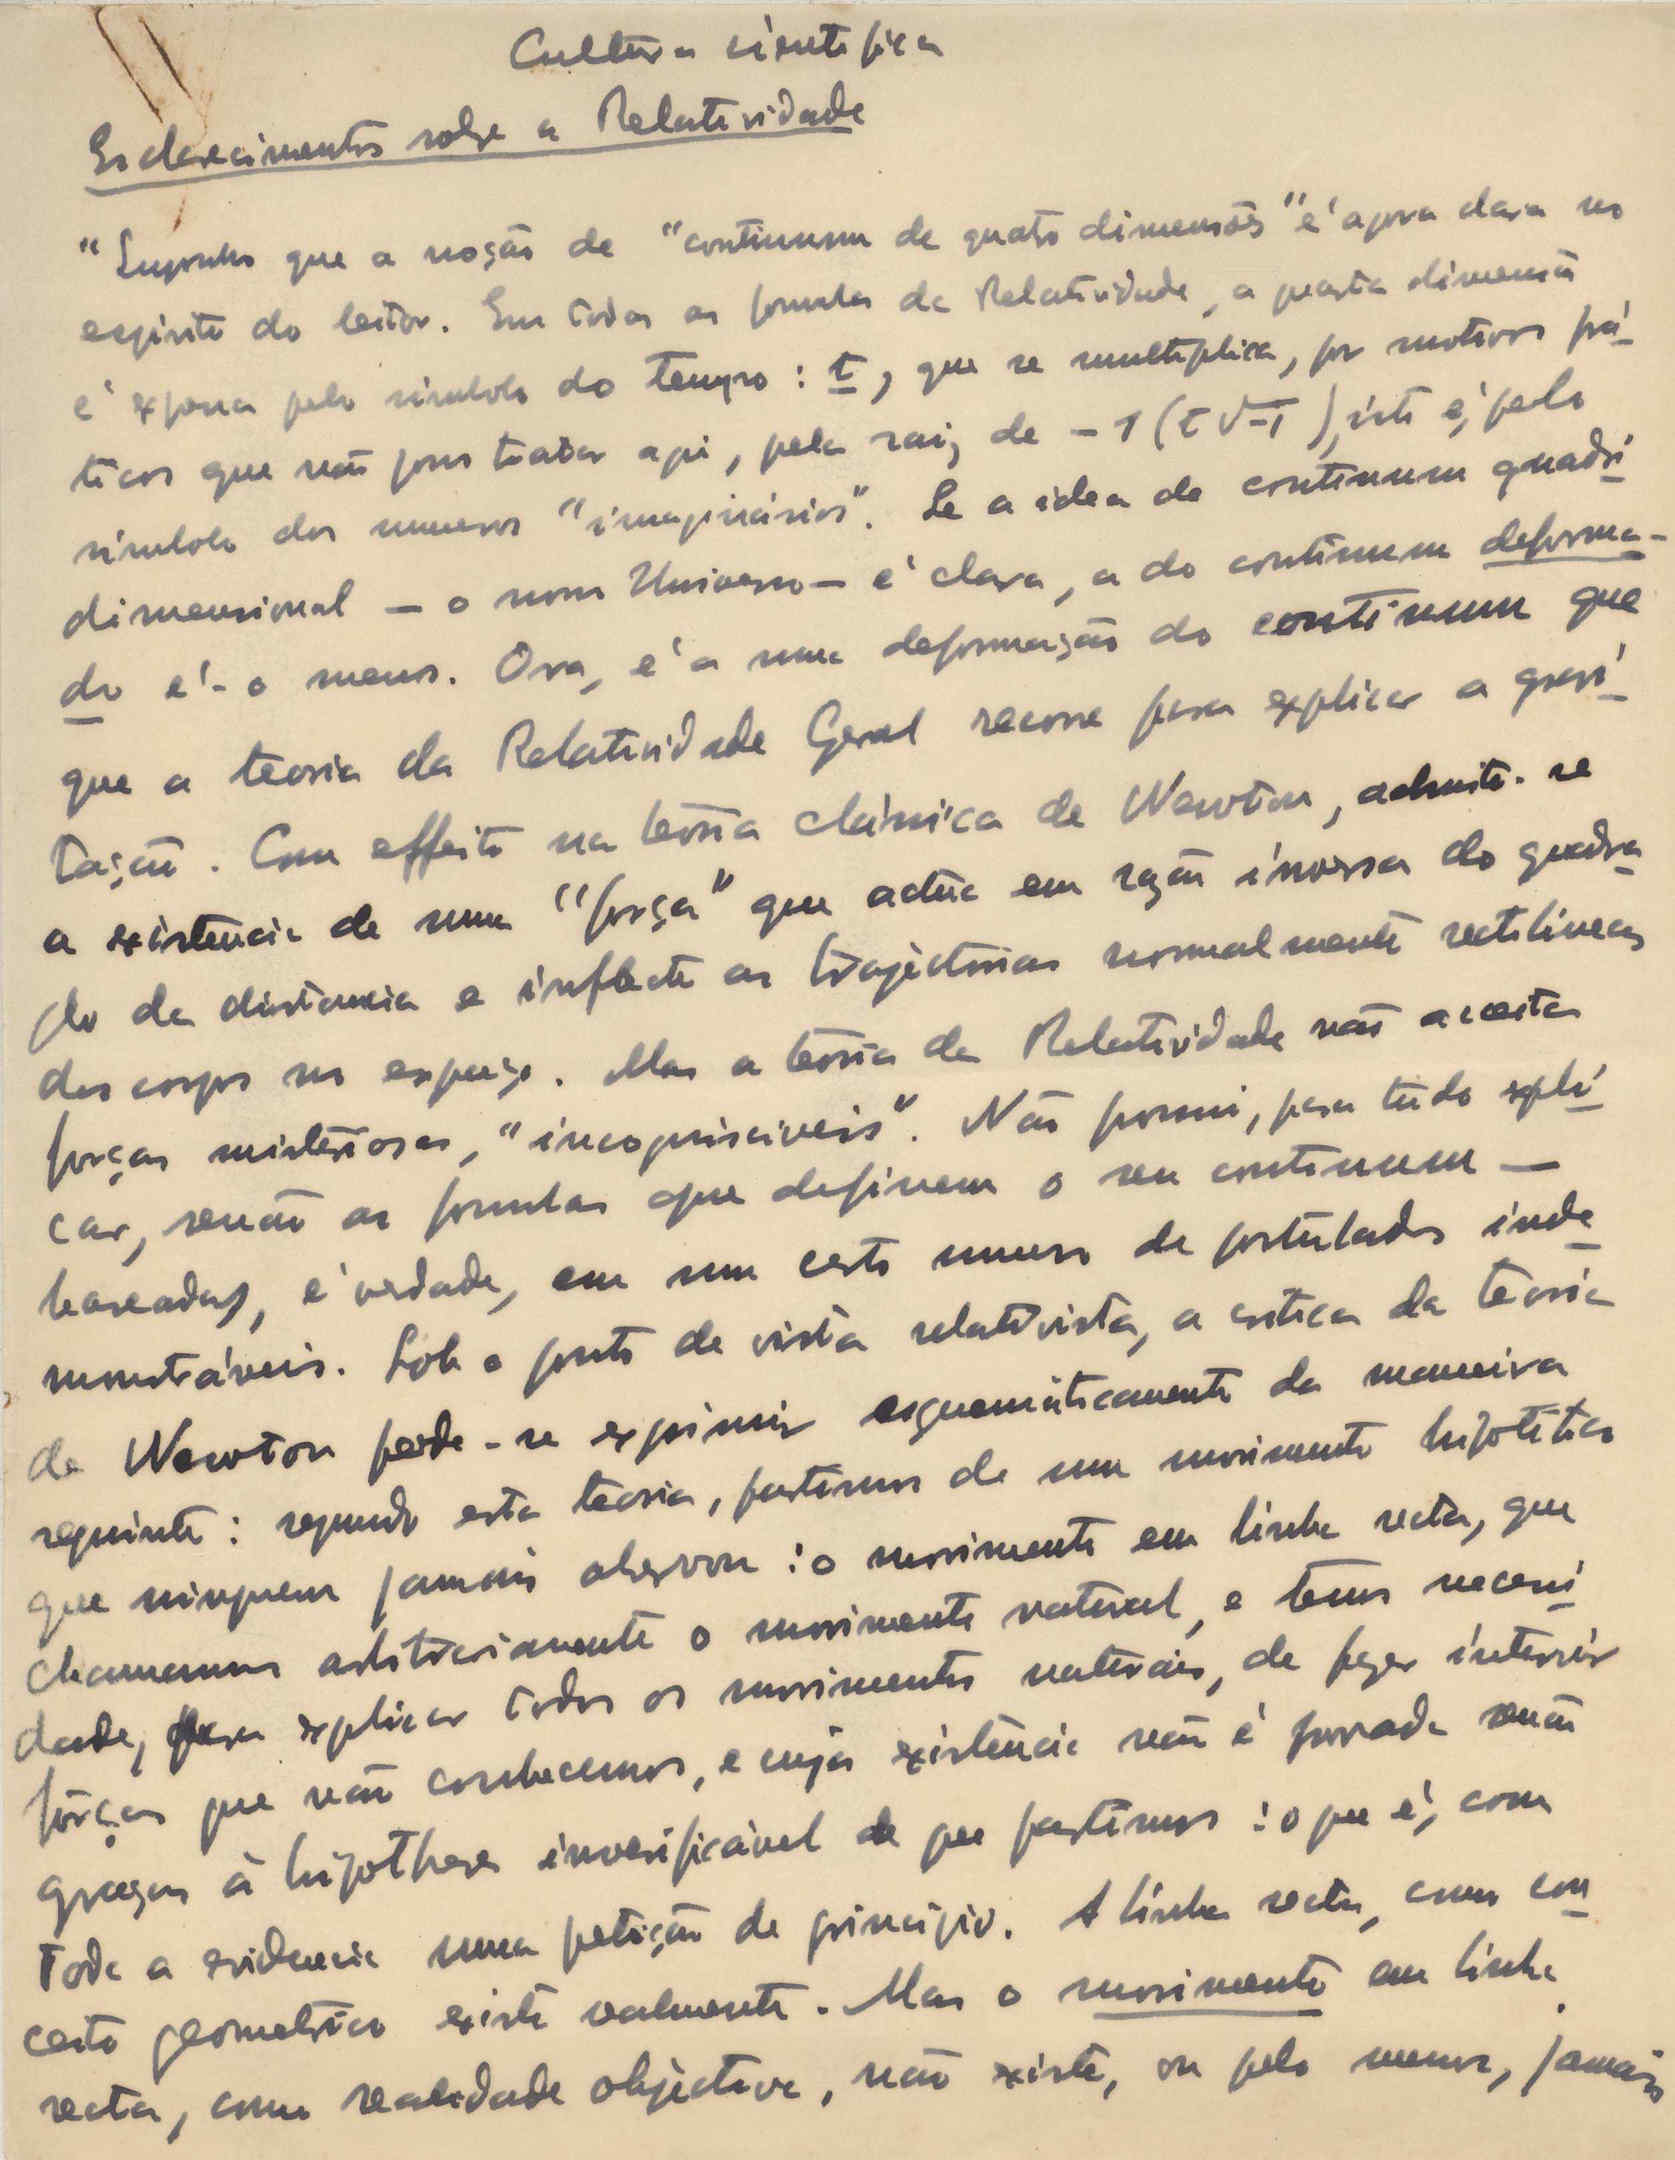 Cultura cientifica
Esclarecimentos sobre a Relatividade
"Suponho que a noção de "continuum de quatro dimensões" é agora clara no
espirito do leitor. Em todas as formulas da Relatividade, a quarta dimensão
é expressa pelo simbolo do tempo: t, que se multiplica, por motivos prá-
ticos que não posso tratar aqui, pela raiz de -1 (t √-1), isto é, pelo
simbolo dos numeros "imaginários". Se a idea de continuum quadri-
dimensional - o nosso Universo - é clara, a do continuum deforma-
do é-o menos. Ora, é a uma deformação do continuum que
que a teoria da Relatividade Geral recorre para explicar a gravi-
tação. Com effeito na teoria clássica de Newton, admite-se
a existencia de uma "força" que actua em razão inversa do quadra-
do da distancia e inflecte as trajectorias normalmente rectilineas
dos corpos no espaço. Mas a teoria da Relatividade não aceita
forças misteriosas, "incognisciveis". Não possui, para tudo expli-
car, senão as formulas que definem o seu continuum -
baseadas, é verdade, em um certo numero de postulados inde-
monstráveis. Sob o ponto de vista relativista, a critica da teoria
de Newton pode-se exprimir esquemáticamente da maneira
seguinte: segundo esta teoria, partimos de um movimento hipotético
que ninguem jamais observou: o movimento em linha recta, que
chamamos arbitrariamente o movimento natural, e temos necessi-
dade, para explicar todos os movimentos naturais, de fazer intervir
fôrças que não conhecemos, e cuja existência não é provada senão
graças à hipothese inverificável de que partimos: o que é, com
toda a evidencia uma petição de principio. A linha recta, como con-
ceito geometrico existe realmente. Mas o movimento em linha
recta, como realidade objectiva, não existe, ou pelo menos, jamais